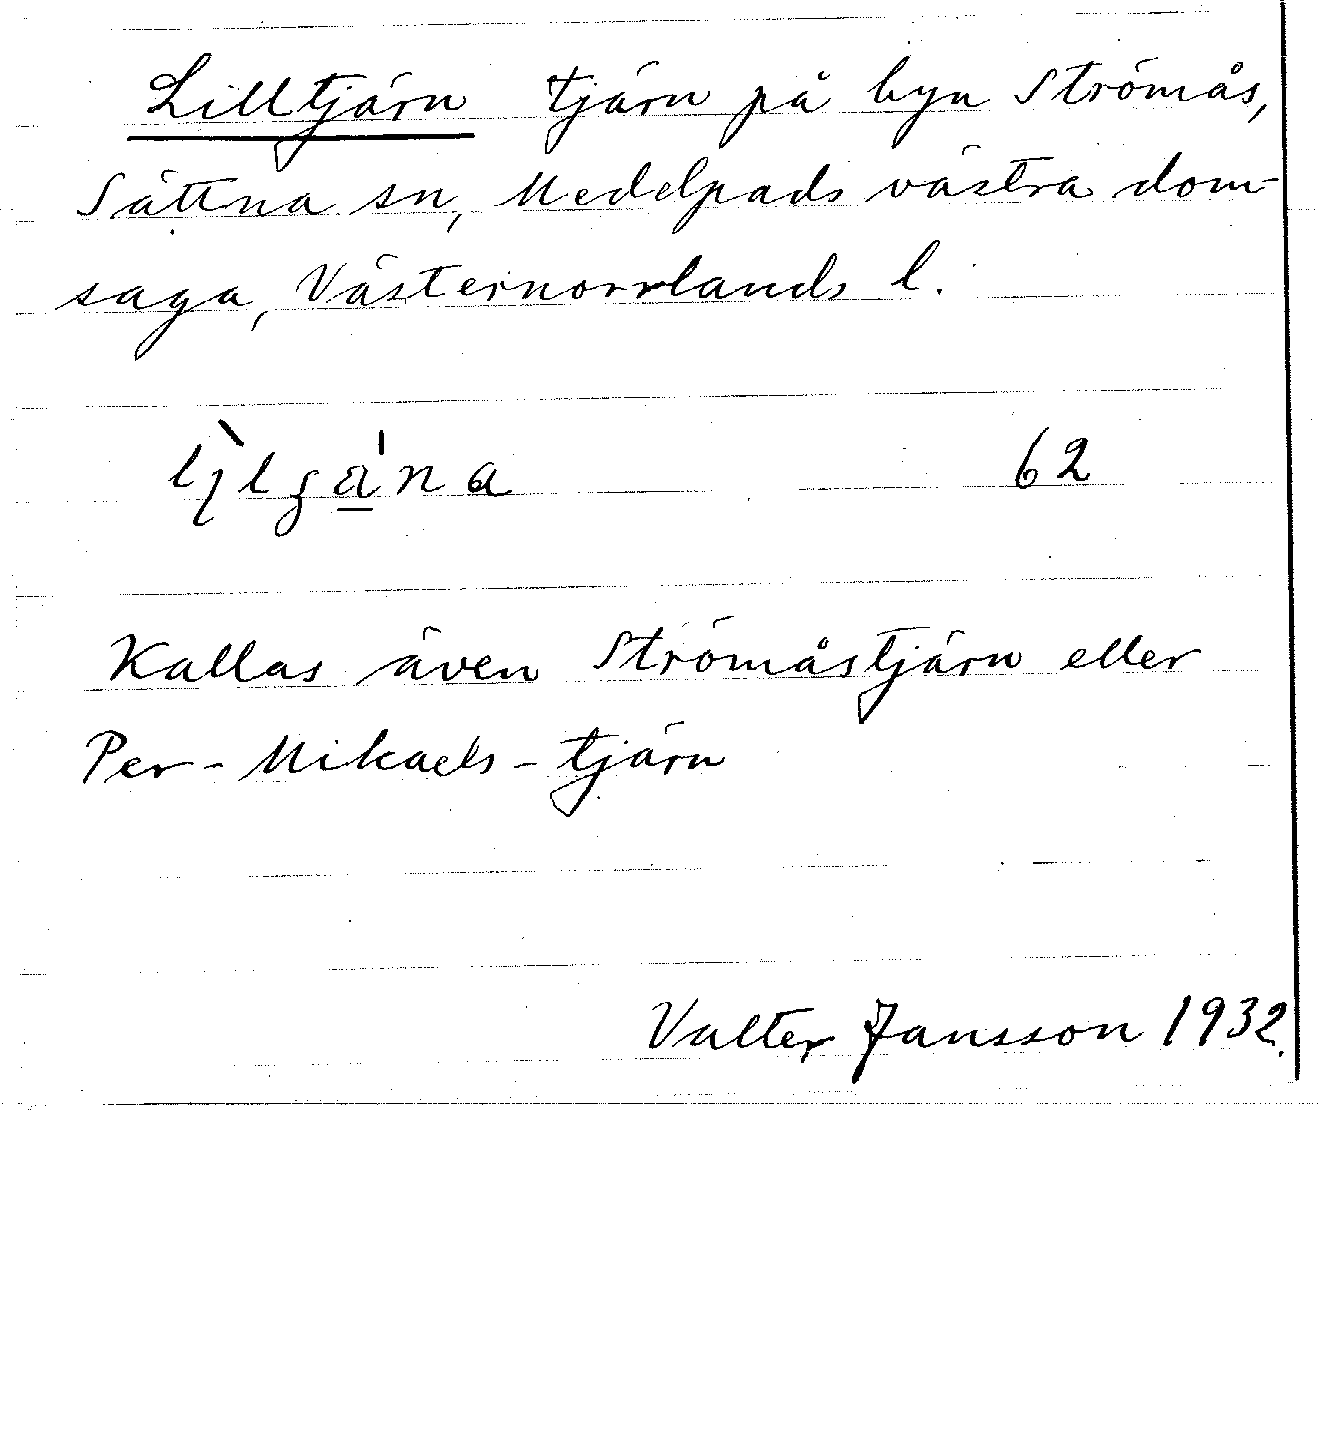 Lilltjärn tjärn på byn Strömås,
Sättna sn, Medelpads västra dom-
saga, Västernorrlands l.
62
Kallas även Strömåstjärn eller
Per-Mikaels-tjärn
Valter Jansson 1932.